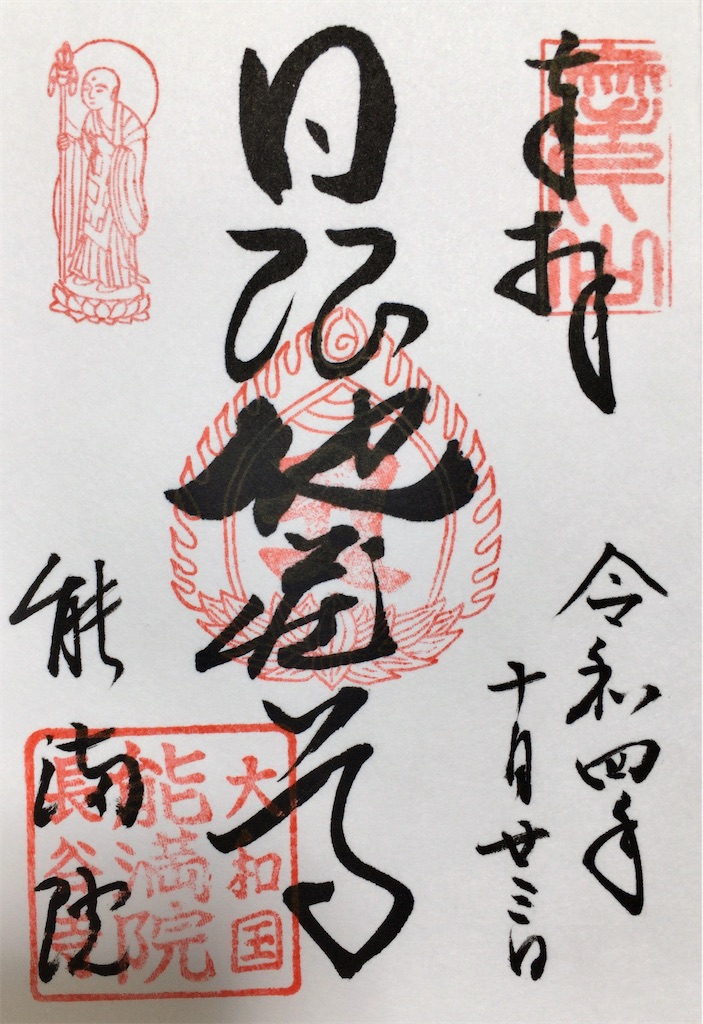 奉拝
令和四年
十月廿三日
日限地蔵尊
能満院
大和国
能満院
長谷